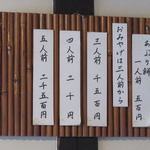 あぶり餅
一人前 五百円
おみやげは三人前から
三人前 千五百円
四人前 二千円
五人前 二千五百円